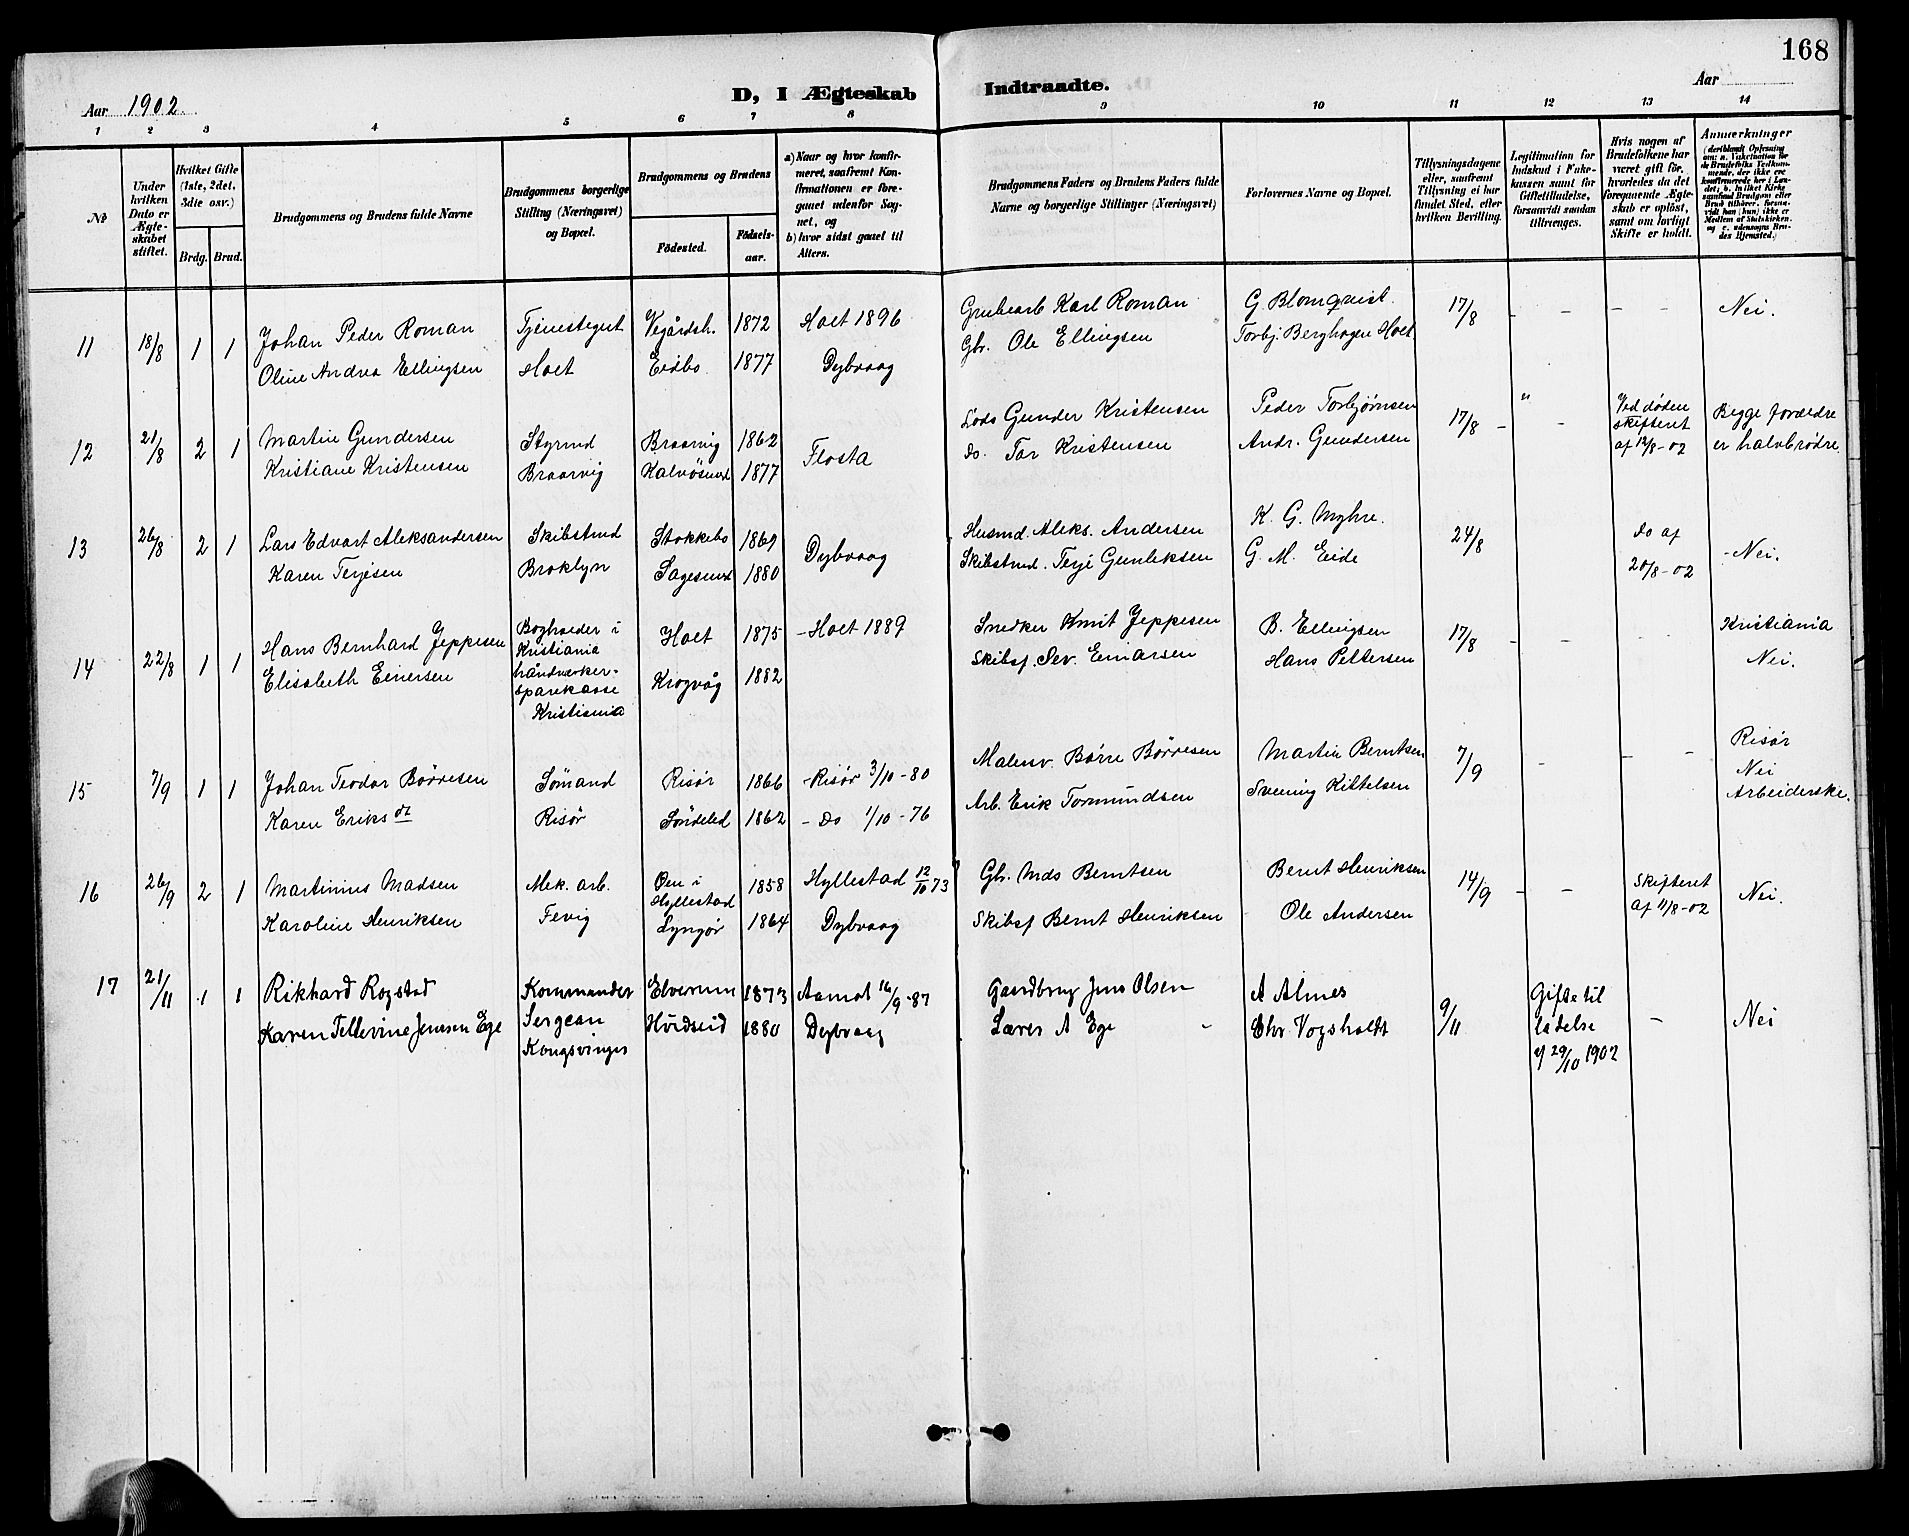 168
Aar 1902.
D, I Ægteskab Indtraadte.
Aar
1 2 3 4 5 6 7 8 9 10 11 12 13 14
No
Under hvilken Dato er Ægteskabet stiftet.
Hvilket Gifte (1ste, 2det, 3die osv.)
Brdg. Brud.
Brudgommens og Brudens fulde Navne
Brudgommens borgerlige Stilling (Næringsvei) og Bopæl.
Brudgommens og Brudens
Födested.
Födselsaar.
a) Naar og hvor konfirmeret, saafremt Konfirmationen er foregaaet udenfor Sognet, og
b) hvor sidst gaaet til Alters.
Brudgommens Faders og Brudens Faders fulde Navne og borgerlige Stillinger (Næringsvei)
Forlovernes Navne og Bopæl.
Tillysningsdagene eller, saafremt Tillysning ei har fundet Sted, efter hvilken Bevilling.
Legitimation for Indskud i Enkekassen samt for Giftetilladelse, forsaavidt saadan tiltrænges.
Hvis nogen af Brudefolkene har været gift för, hvorledes da det foregaaende Ægteskab er oplöst, samt om lovligt Skifte er holdt.
Anmerkninger
11 18/8 1 1 Johan Peder Roman Tjenestegut Vegårdsh. 1872 Holt 1896 Grubearb Karl Roman G. Blomqvist. 17/8 - - - - Nei.
Oline Andrea Ellingsen Holt Eidbo 1877 Dybvaag Gbr. Ole Ellingsen Torbj. Berghagen Holt.
12 21/8 2 1 Martin Gundersen Styrmd Braarvig 1862 Flosta Lods Gunder Kristensen Peder Torbjørnsen 17/8 - " - Ved døden skifteret af 12/8-02 Begge forældre er halvbrødre.
Kristiane Kristensen Braarvig Kalvøsund 1877 do. Tar Kristensen Andr. Gundersen
13 26/8 2 1 Lars Edvart Aleksandersen Skibstmd Stokkebo 1869 Dybvaag Husmd. Aleks. Andersen K. G. Myhre. 24/8 do af 20/8-02 - Nei.
Karen Terjesen Broklyn Sagesund 1880 Skibstmd. Terje Gunleksen G. M. Eide
14 22/8 1 1 Hans Bernhard Jeppesen Bogholder i Kristiania håndværkersparekasse Kristiania Holt 1875 - Holt 1889 Snedker Knut Jeppesen B. Ellingsen 17/8 - - - Kristiania
Elisabeth Einersen Krogvåg 1882 Skibsf. Sev. Einarsen Hans Pettersen Nei.
15 7/9 1 1 Johan Teodor Börresen Sömand Risör 1866 - Risör 3/10-80 Malersv. Börre Börresen Martin Berntsen 7/9 - - - Risör
Karen Eriks dt Risör Söndeled 1862 - Do 1/10-76 Arb. Erik Tormundsen Svening Kittelsen Nei
Arbeiderske.
16 26/9 2 1 Martinius Madsen Mek. arb. Øen i Hyllestad 1858 Hyllestad 12/10 73 Gbr. Mds Berntsen Bernt Henriksen 14/9 - - Skifteret af 11/8-02 Nei.
Karoline Henriksen Fevig Lyngør 1864 Dybvaag Skibsf Bernt Henriksen Ole Andersen
17 21/11 1 1 Rikhard Rogstad Kommandersergean Kongsvinger Elverum 1873 Aamot 16/9-87 Gaardbrug Jens Olsen A Alnes 9/11 Giftetilladelse af 29/10 1902 - Nei
Karen Tellevine Jensen Ege Hvidseid 1880 Dybvaag Lærer A Ege Chr. Vogsholdt